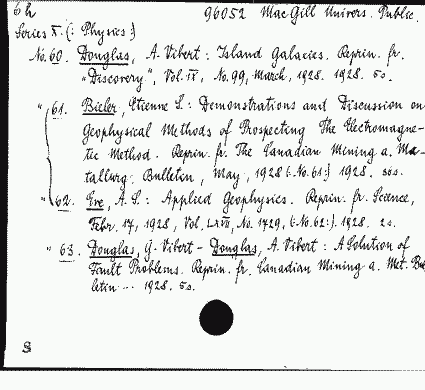 6h 96052 MacGill Univers. Public.
Series X (: Physics:)
No. 60. Douglas, A. Vibert: Island Galaxies. Reprin. fr.
"Discovery", Vol. IX, No. 99, March, 1928. 1928. 5s.
" 61. Bieler, Etienne S.: Demonstrations and Discussion on
Geophysical Methods of Prospecting The Electromagne-
tic Method. Reprin. fr. The Canadian Mining a. Me-
tallurg. Bulletin, May, 1928 (:No. 61:) 1928.
" 62. Eve, A. S.: Applied Geophysics. Reprin. fr. Science,
Febr. 17, 1928, Vol. LXVII, No. 1729, (:No. 62:). 1928. 2s.
" 63. Douglas, G. Vibert - Douglas, A. Vibert: A Solution of
Fault Problems. Reprin. fr. Canadian Mining a. Met. Bul-
letin ... 1928. 5s.
S